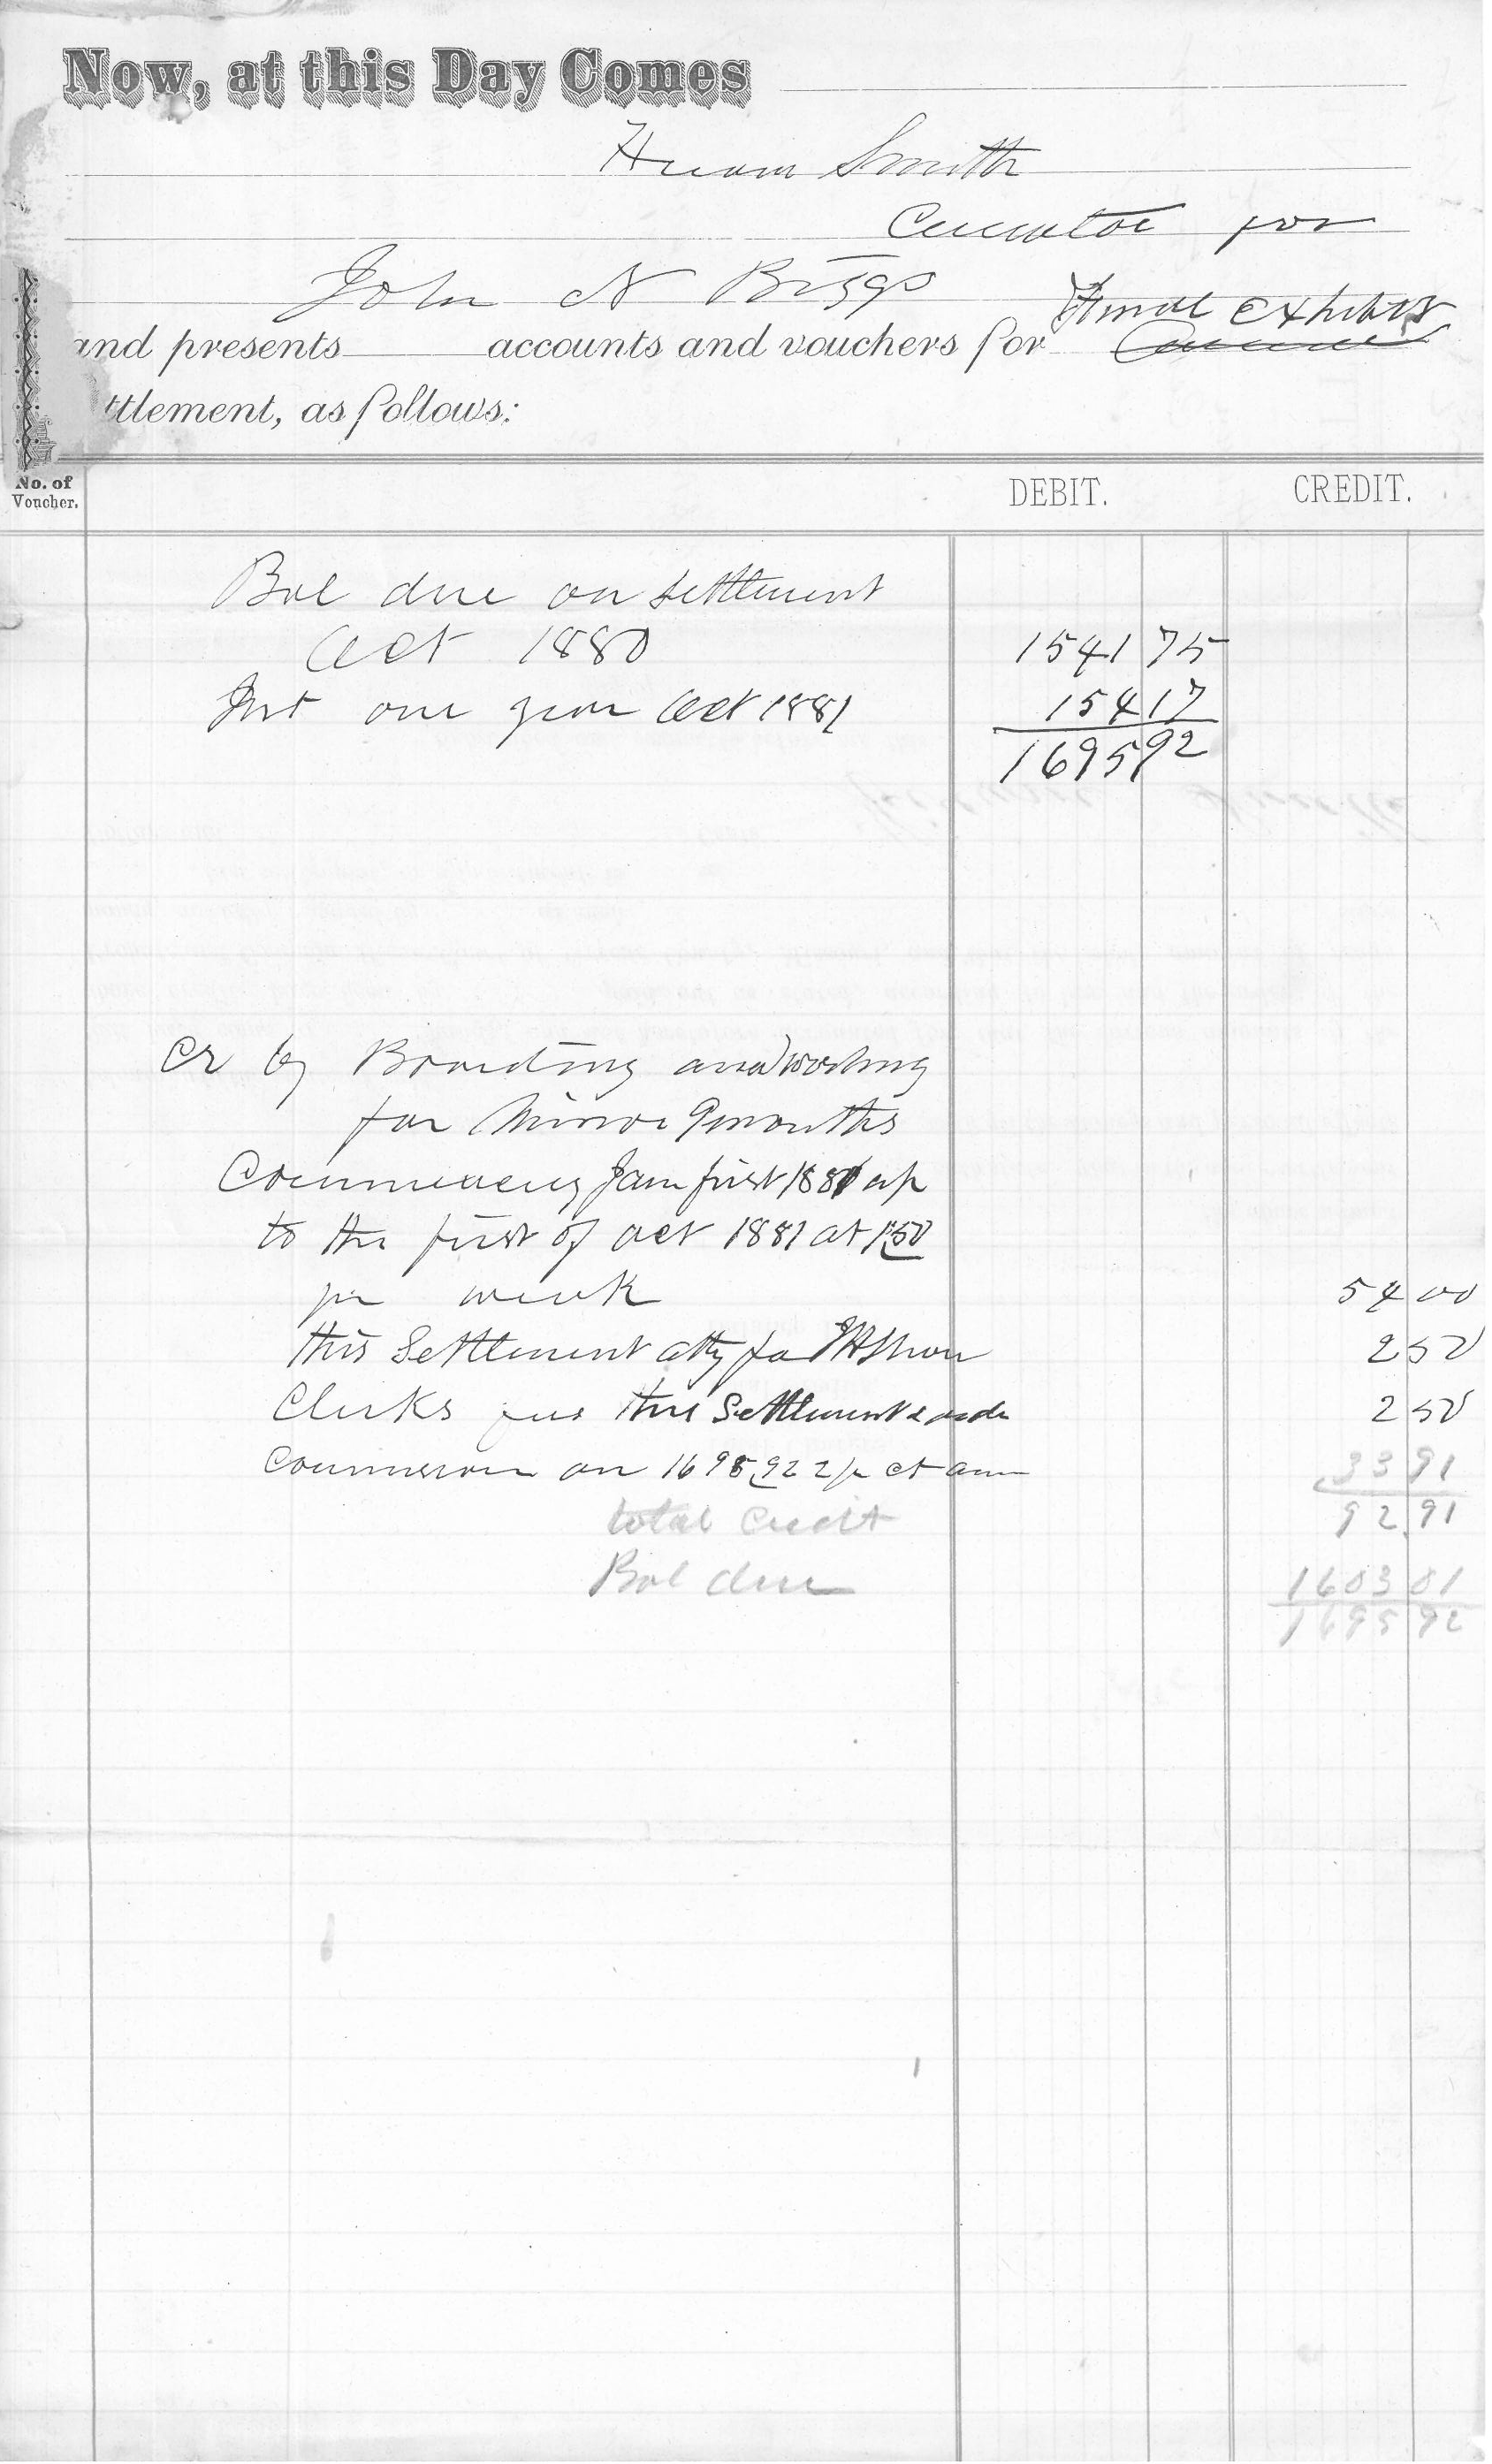 Now, at this Day Comes
Hiram Smith
Curator for
John N Briggs
Final Exhibit
and presents accounts and vouchers for
ttlement, as follows:
No. of Voucher. DEBIT. CREDIT.
Bal due on settlement
Oct 1880 1541 75
Int one year Oct 1881 154 17
1695 92
Cr by Boarding and washing
for Minor 9 months
Commencing Jan first 1881 up
to the first of Oct 1881 at 1.50
per week 54 00
this Settlement atty fee 2 50
Clerks fees this Settlement 2 50
Commission on 1695.92 2 p ct 33 91
total Credit 92 91
Bal due 1603 01
1695 92